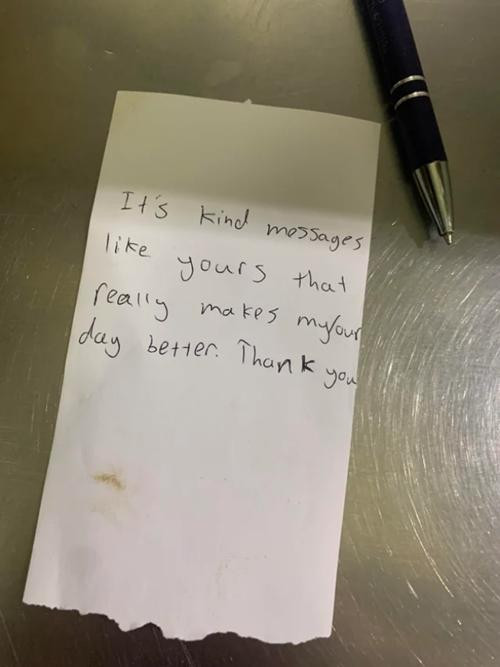 It's kind messages
like yours that
really makes my/our
day better. Thank you